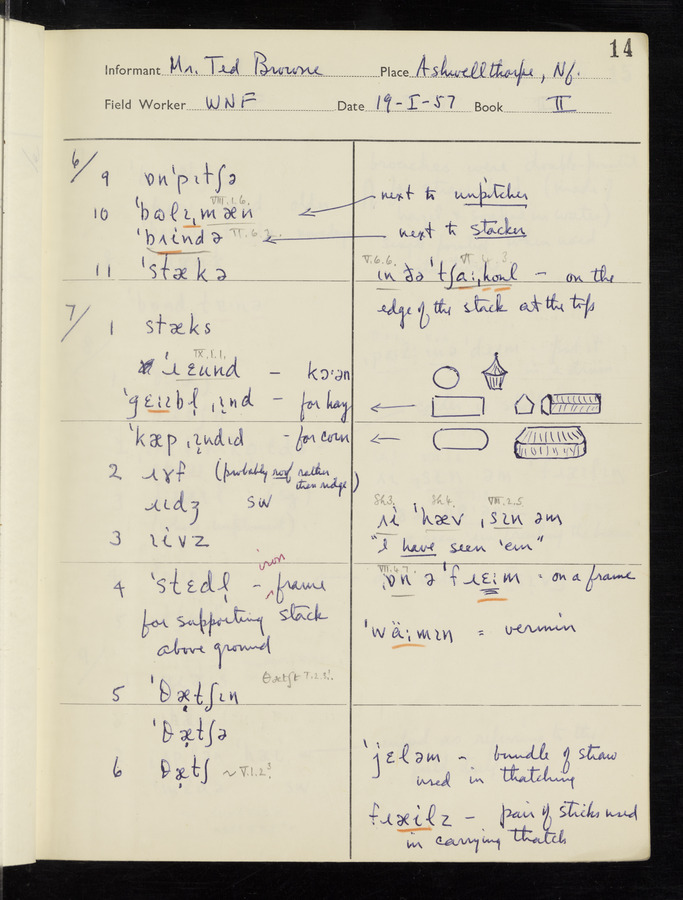 14
Informant Mr. Ted Browne Place Ashwellthorpe, Nf.
Field Worker WNF Date 19-I-57 Book II
6/ 9 ɒnˈpɪtʃə
VIII.1.6.
10 ˈbʊlɪˌmæn
next to unpitcher
ˈbɹində
next to stacker
11 ˈstækə
V.6.6.
ɪn ðə ˈtʃaːˌ
– on the
edge of the stack at the top
7/ 1 stæks
IX.1.1.
ˈɹɛʊnd – kɔːən
– for hay
ˈkæpˌɪndɪd – for corn
2 ɹɤf (probably roof rather
than ridge)
ɹɪdʒ SW
3 ɪivz
Sh.3. Sh.4. VIII.2.5.
ɹi ˈhæv ˌsɪn əm
"I have seen 'em"
4 ˈstɛdl̩ – iron frame
for supporting stack
above ground
VII.4.7.
ˌɒn ə ˈfɹɛɪm = on a frame
ˈwäːmɪn = vermin
5 ˈθætʃɪn
ˈθætʃə
6 θætʃ ~ V.1.2³
ˈjɛləm – bundle of straw
used in thatching
fɹæilz – pair of sticks used
in carrying thatch